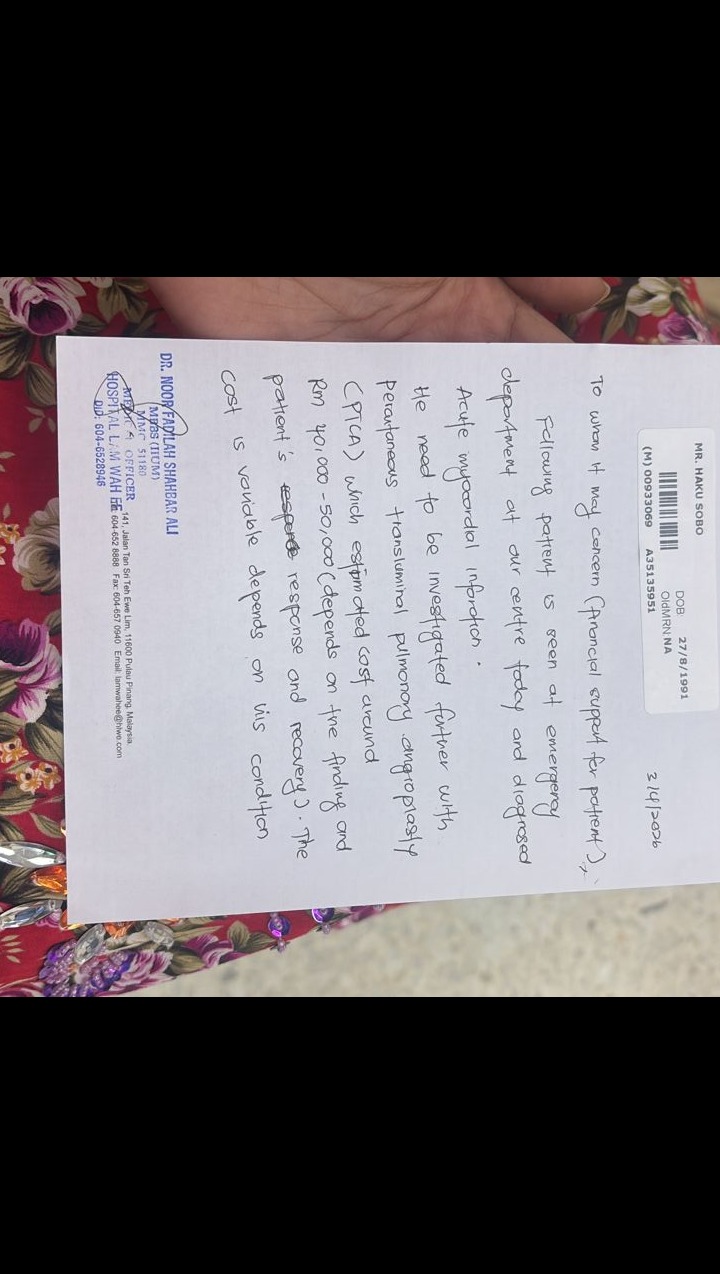 MR. HAKU SOBO
DOB: 27/8/1991
OldMRN:NA
(M) 00933069 A35135951
3/4/2026
To whom it may concern (financial support for patient).
Following patient is seen at emergency
department at our centre today and diagnosed
Acute myocardial infarction.
He need to be investigated further with
percutaneous transluminal pulmonary angioplasty
(PTCA) which estimated cost around
RM 40,000 - 50,000 (depends on the finding and
patient's response and recovery). The
cost is variable depends on his condition
DR. NOOR FADILAH SHAHBAR ALI
MBBS (IIUM)
MMC 51180
MEDICAL OFFICER
HOSPITAL LAM WAH EE
DID: 604-6528946
141, Jalan Tan Sri Teh Ewe Lim, 11600 Pulau Pinang, Malaysia.
Tel: 604-652 8888 Fax: 604-657 0940 Email: lamwahee@hlwe.com